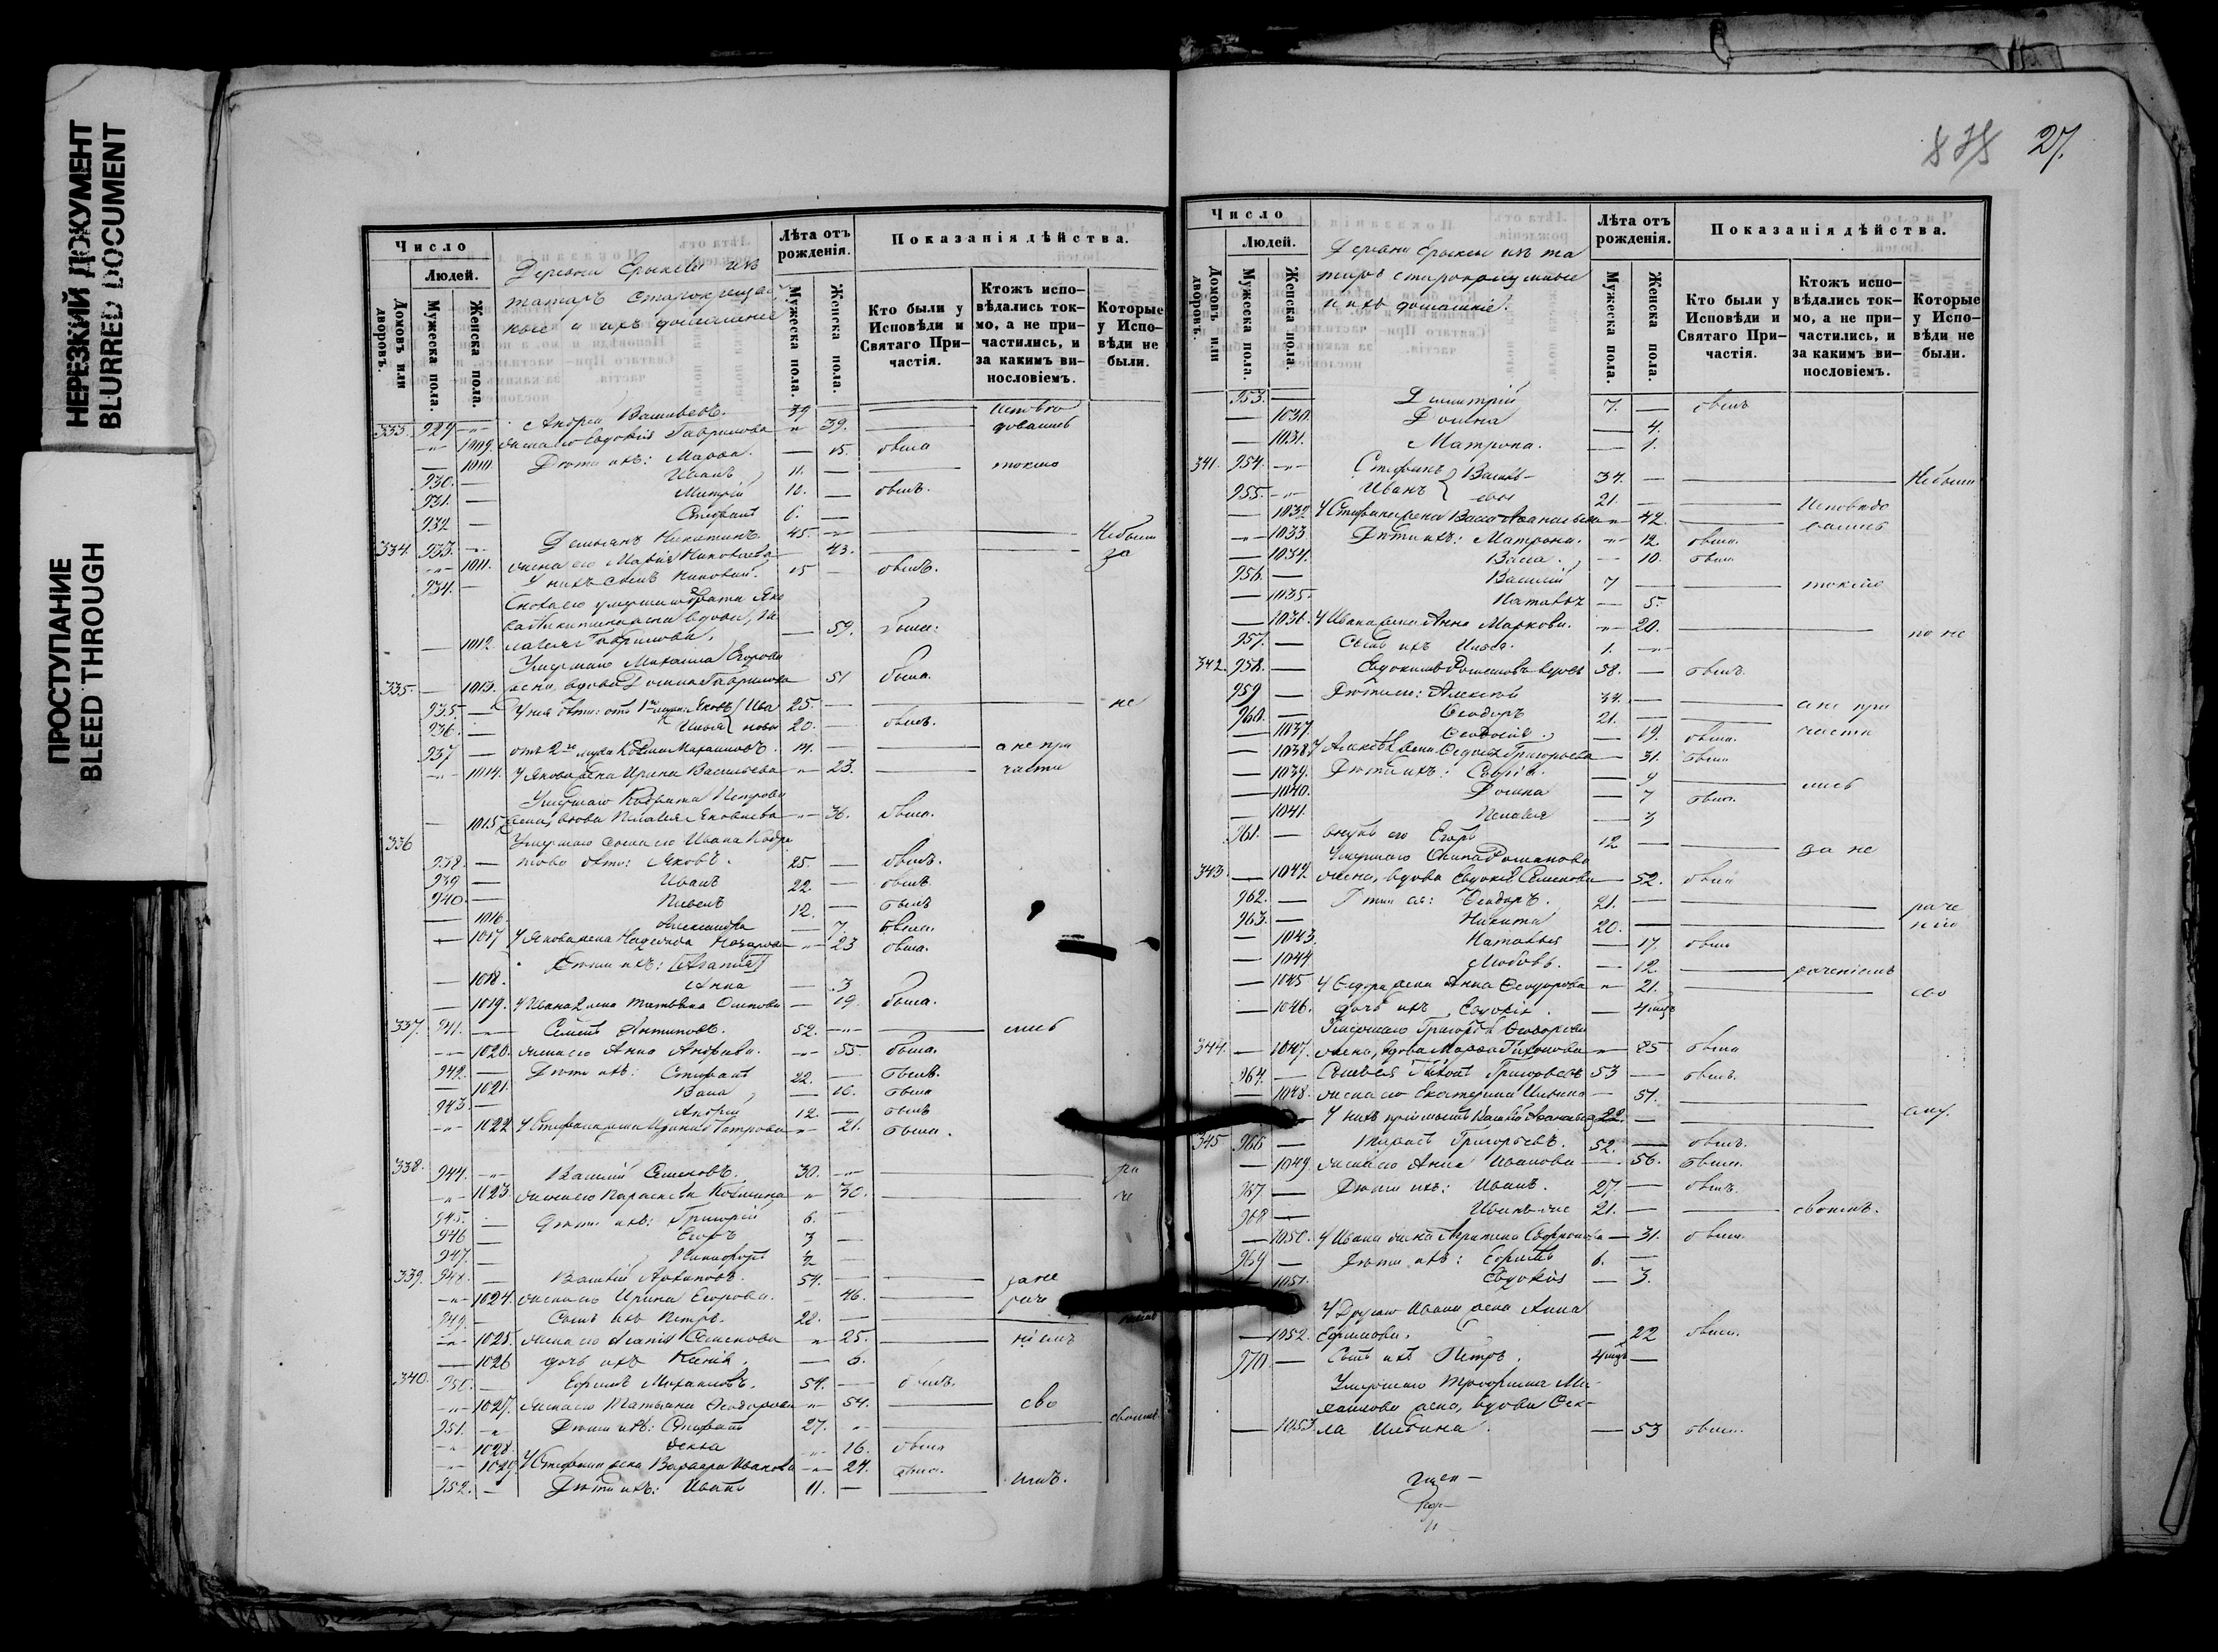 НЕРЕЗКИЙ ДОКУМЕНТ
BLURRED DOCUMENT
ПРОСТУПАНИЕ
BLEED THROUGH
Число
Людей.
Домовъ или дворовъ.
Мужеска пола.
Женска пола.
Деревни Ерыклы изъ
татаръ старокрещен
ные и ихъ домашніе
Лѣта отъ рожденія.
Мужеска пола.
Женска пола.
Показанія дѣйства.
Кто были у Исповѣди и Святаго Причастія.
Ктожъ исповѣдались токмо, а не причастились, и за какимъ винословіемъ.
Которые у Исповѣди не были.
333. 929 Андрей Васильевъ. 39 исповѣ
1009. жена его Евдокія Гаврилова 39. довались
1010. Дѣти ихъ: Марѳа. 15. была
930. Иванъ 11. токмо
931. Митрій 10. былъ.
932 Стефанъ 6.
334. 933. Демьянъ Никитинъ 45. Небыли
1011. жена его Марія Николаева 43. за
934. У нихъ сынъ Николай. 15 былъ.
Сноха его умершаго брата Яко
ва Никитина жена вдова, Пе
1012 лагея Гаврилова. 59. была.
Умершаго Михаила Егорова
335. 1013. жена, вдова Домна Гаврилова 51 была.
935. У нея дѣти: отъ 1го мужа Яковъ Ива 25. не
936. Илья новы 20. былъ.
937 отъ 2го мужа Михайловъ. 14. а не при
1014. У Якова жена Ирина Васильева 23. части
Умершаго Кодрата Петрова
1015 жена, вдова Пелагея Яковлева 36. была.
336 Умершаго сына его Ивана Кодра
938. това дѣти: Яковъ. 25. былъ.
939 Иванъ 22. былъ
940. Павелъ 12. былъ
1016. Александра 7. была.
1017 У Якова жена Надежда Назарова 23 была.
Дѣти ихъ: [Агапія]
1018. Анна 3
1019. У Ивана жена Татьяна Осипова 19. была.
337. 941. Семенъ Антиповъ. 52. лись
1020. жена его Анна Андреева. 55. была.
942. Дѣти ихъ: Стефанъ 22. былъ.
1021. Васа 16. была
943. Андрей 12. былъ
1022 У Стефана жена Ирина Петрова 21. была.
338. 944. Василій Семеновъ. 30. ра
1023. жена его Параскева Козмина 30. че
945. дѣти ихъ: Григорій 6.
946 Егоръ 3
947. Никифоръ
339. 948. Василій Архиповъ. 54. за не
1024. жена его Ирина Егорова. 46. раче
949. Сынъ ихъ Петръ. 28.
1025 жена его Агапія Семенова 25. ніемъ
1026 дочь ихъ Ксенія. 6.
340. 950. Ефремъ Михаиловъ. 54. былъ.
1027. жена его Татьяна Ѳеодорова 54. сво
951. Дѣти ихъ: Стефанъ 27. своимъ
1028. Ѳекла 16. была
1029. У Стефана жена Варвара Иванова 24. была.
952. Дѣти ихъ: Иванъ 11. имъ.
27.
Число
Людей.
Домовъ или дворовъ.
Мужеска пола.
Женска пола.
Деревни Ерыклы изъ та
таръ старокрещенные
и ихъ домашніе.
Лѣта отъ рожденія.
Мужеска пола.
Женска пола.
Показанія дѣйства.
Кто были у Исповѣди и Святаго Причастія.
Ктожъ исповѣдались токмо, а не причастились, и за какимъ винословіемъ.
Которые у Исповѣди не были.
953. Димитрій 7. былъ
1030. Домна 4.
1031. Матрона. 1.
341. 954. Стефанъ Василь- 34. Небыли
955. Иванъ евы 21. Исповѣдо
1032 У Стефана жена Васса Аѳанасьева 42. вались
1033. Дѣти ихъ: Матрона. 12. была.
1034. Васса. 10. была
956. Василій 7 токмо
1035. Наталья 5.
1036. У Ивана жена Анна Маркова. 20. по не
957. Сынъ ихъ Илья. 1.
342. 958. Евдокимъ Романовъ вдовъ 58. былъ.
959 Дѣти его: Алексѣй 34. а не при
960. Ѳеодоръ 21. части
1037. Ѳеодосія 19. была.
1038. У Алексѣя жена Ѳедосья Григорьева 31. была
1039. Дѣти ихъ: Софія. 9 лись
1040. Домна 7 была.
1041. Пелагея 3
961. внукъ его Егоръ 12 за не
Умершаго Осипа Романова
343. 1042. жена, вдова Евдокія Семенова 52. была
962. Дѣти ея: Ѳеодоръ. 21. раче
963. Никита 20. ніе
1043. Наталья 17. была
1044. Любовь. 12. раченіемъ
1045 У Ѳедора жена Анна Ѳеодорова 21. сво
1046. дочь ихъ Евдокія. 4 мцъ
Умершаго Григорья Ѳеодорова
344. 1047. жена, вдова Марѳа Тихонова 85 была
964. Сынъ ея Тихонъ Григорьевъ 53 былъ.
1048. жена его Екатерина Ильина 51.
У нихъ пріемышъ Василій Аѳанасьевъ 22. ему.
345 966 Тарасъ Григорьевъ. 52. былъ.
1049 жена его Анна Иванова 56. была.
967 Дѣти ихъ: Иванъ. 27. былъ.
968 Иванъ-же 21. своимъ.
1050. У Ивана жена Софронова 31. была.
969 Дѣти ихъ: Ефремъ 6.
1051. Евдокія 3.
У Другаго Ивана жена Анна
1052. Ефимова. 22 была.
970 Сынъ ихъ Петръ. 4 мцъ
Умершаго Ми-
хайлова жена, вдова Ѳек-
1053 ла Ильина. 53 была.